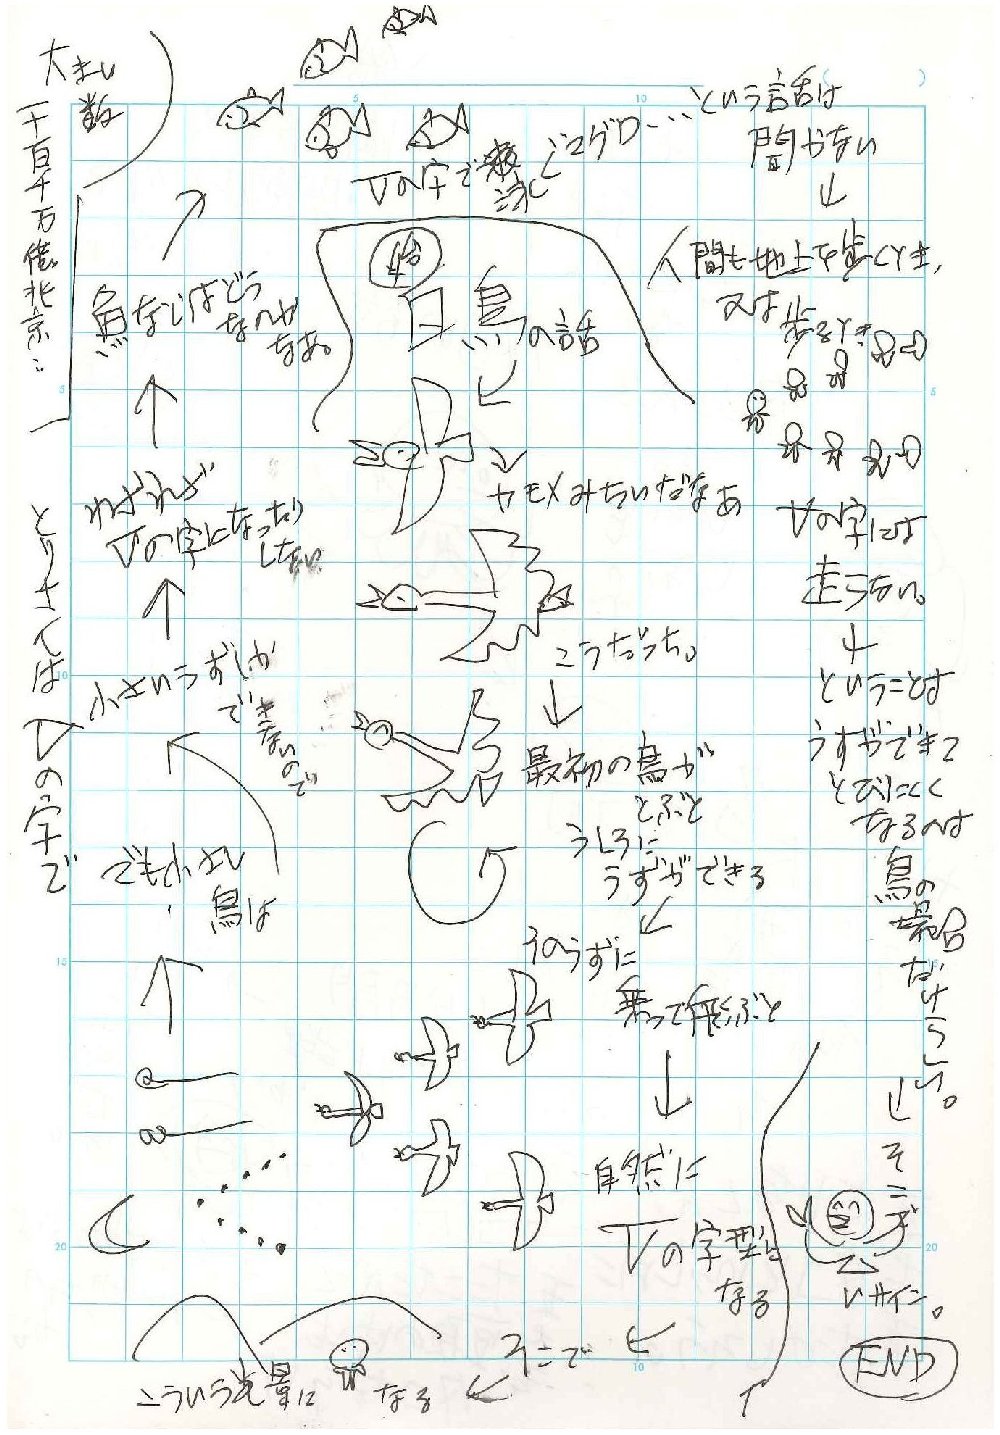 始
白鳥の話
カモメみたいだなあ
こうだっち。
最初の鳥が
とぶと
うしろに
うずができる
そのうずに
乗って飛ぶと
自然に
Vの字型に
なる
そこで
こういう光景に
なる
でも小さい
鳥は
小さいうずしか
できないので
わざわざ
Vの字になったり
しない
魚なんかはどう
なのか
なあ。
Vの字で
泳ぐマグロ…という話は
聞かない
人間も地上を歩くとき、
又は
走るとき
Vの字には
走らない。
ということは
うずができて
とびにくく
なるのは
鳥の
場合
だけらしい。
そこで
Vサイン。
END
大きい
数
一十百千万億兆京…
とりさんはVの字で
5
10
5
10
15
20
5
15
20
10